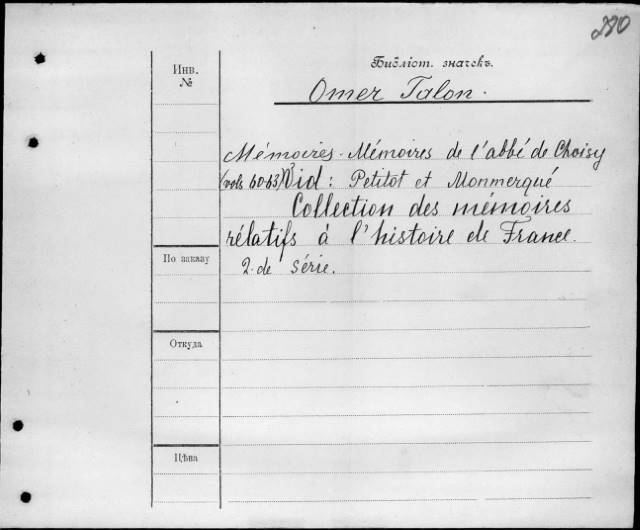 280
Инв.
№
Библіот. значекъ.
Omer Talon.
Mémoires. Mémoires de l'abbé de Choisy
(vols 60-63) Vid: Petitot et Monmerqué
Collection des mémoires
rélatifs à l'histoire de France.
2-de série.
По заказу
Откуда
Цѣна